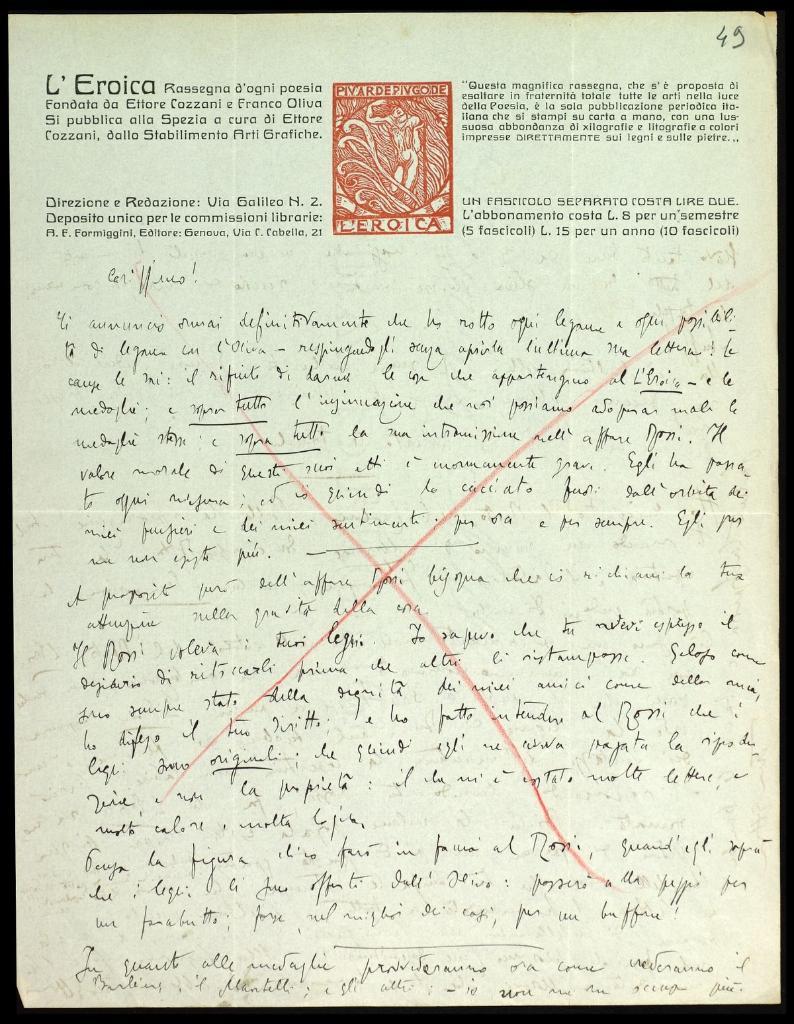 49
L'Eroica Rassegna d'ogni poesia
Fondata da Ettore Cozzani e Franco Oliva
Si pubblica alla Spezia a cura di Ettore
Cozzani, dallo Stabilimento Arti Grafiche.
Direzione e Redazione: Via Galileo N. 2.
Deposito unico per le commissioni librarie:
A. F. Formiggini, Editore: Genova, Via C. Cabella, 21
PIVARDEPIVGODE
L'EROICA
"Questa magnifica rassegna, che s'è proposta di
esaltare in fraternità totale tutte le arti nella luce
della Poesia, è la sola pubblicazione periodica ita-
liana che si stampi su carta a mano, con una lus-
suosa abbondanza di xilografie e litografie a colori
impresse DIRETTAMENTE sui legni e sulle pietre...
UN FASCICOLO SEPARATO COSTA LIRE DUE.
L'abbonamento costa L. 8 per un semestre
(5 fascicoli) L. 15 per un anno (10 fascicoli)
Carissimo!
Ti annuncio ormai definitivamente che ho rotto ogni legame e ogni possibili-
tà di legame con l'Oliva - respingendogli senza aprirla l'ultima sua lettera! Le
cause le sai: il rifiuto di darmi le cose che appartengono al L'Eroica - e le
medaglie; e sopra tutto l'insinuazione che noi possiamo adoperar male le
medaglie stesse; e sopra tutto la sua intromissione nell'affare Rossi. Il
valore morale di questi suoi atti è enormemente grave. Egli ha passa-
to ogni misura; ed io quindi lo cacciato fuori dall'orbita dei
miei pensieri e dei miei sentimenti: per ora e per sempre. Egli per
me non esiste più.
A proposito però dell'affare Rossi bisogna che io richiami la tua
attenzione sulla gravità della cosa.
Il Rossi voleva i tuoi legni. Io sapevo che tu avevi espresso il
desiderio di ritoccarli prima che altri li ristampasse. Geloso come
sono sempre stato della dignità dei miei amici come della mia,
ho difeso il tuo diritto: e ho fatto intendere al Rossi che i
legni sono originali; che quindi egli ne aveva pagata la riprodu-
zione e non la proprietà: il che mi è costato molte lettere, e
molto calore, e molta logica.
Pensa la figura ch'io farò in faccia al Rossi, quand'egli saprà
che i legni li sono offerti dall'Oliva: passerò alla peggio per
un farabutto; forse, nel miglior dei casi, per un buffone!
In quanto alle medaglie provvederanno ora come crederanno il
il Mantelli; e gli altri: - io non me ne occupo più.